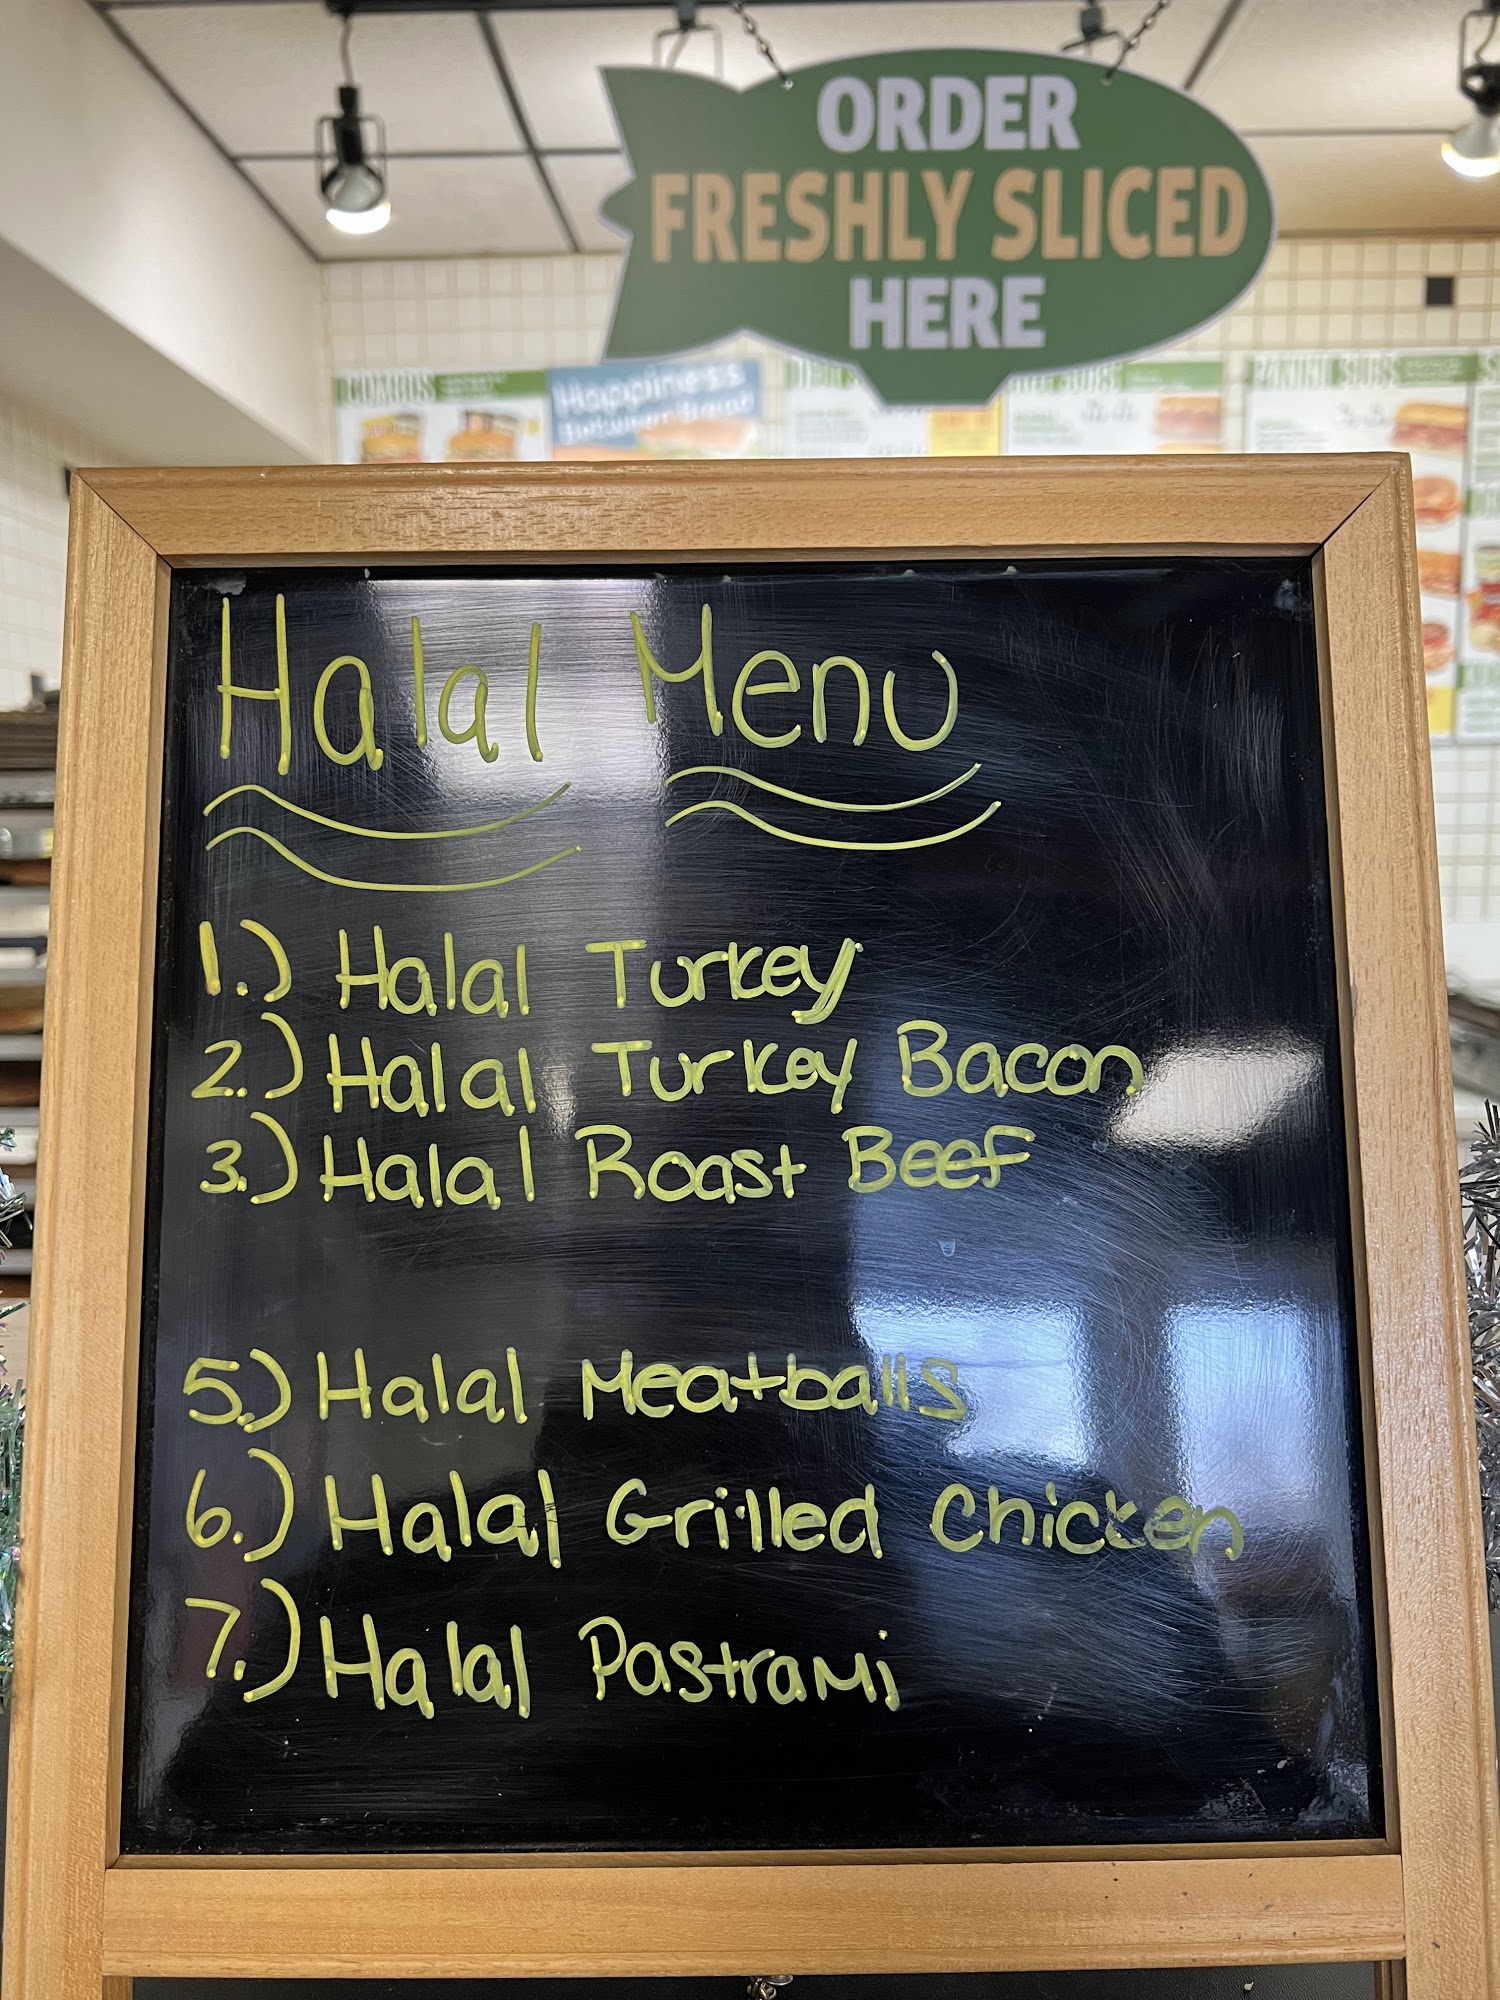 ORDER
FRESHLY SLICED
HERE
COMBOS
Happiness
Between Bread
PANINI SUBS
Halal Menu
1.) Halal Turkey
2.) Halal Turkey Bacon
3.) Halal Roast Beef
5.) Halal Meatballs
6.) Halal Grilled Chicken
7.) Halal Pastrami